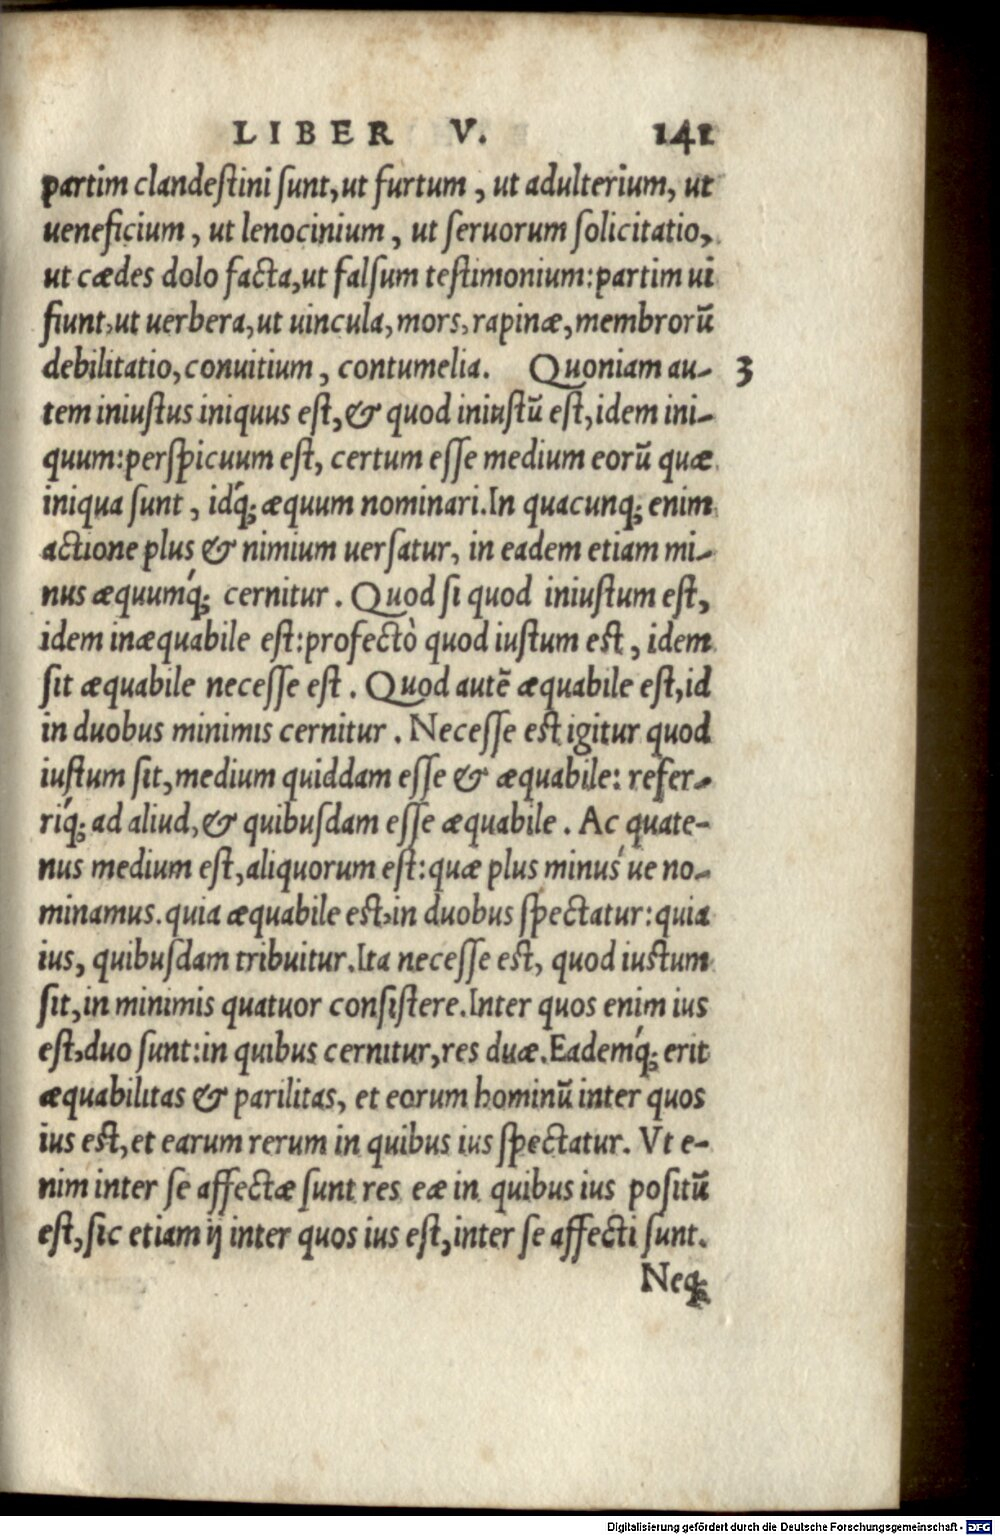 LIBER V. 141
partim clandestini sunt, ut furtum, ut adulterium, ut
ueneficium, ut lenocinium, ut seruorum solicitatio,
ut cædes dolo facta, ut falsum testimonium: partim ui
fiunt, ut uerbera, ut uincula, mors, rapinæ, membrorū
debilitatio, conuitium, contumelia. Quoniam au- 3
tem iniustus iniquus est, & quod iniustū est, idem ini-
quum: perspicuum est, certum esse medium eorū quæ
iniqua sunt, idq́; æquum nominari. In quacunq; enim
actione plus & nimium uersatur, in eadem etiam mi-
nus æquumq́; cernitur. Quod si quod iniustum est,
idem inæquabile est: profectò quod iustum est, idem
sit æquabile necesse est. Quod autē æquabile est, id
in duobus minimis cernitur. Necesse est igitur quod
iustum sit, medium quiddam esse & æquabile: refer-
riq́; ad aliud, & quibusdam esse æquabile. Ac quate-
nus medium est, aliquorum est: quæ plus minuś ue no-
minamus. quia æquabile est, in duobus spectatur: quia
ius, quibusdam tribuitur. Ita necesse est, quod iustum
sit, in minimis quatuor consistere. Inter quos enim ius
est, duo sunt: in quibus cernitur, res duæ. Eademq́; erit
æquabilitas & parilitas, et eorum hominū inter quos
ius est, et earum rerum in quibus ius spectatur. Vt e-
nim inter se affectæ sunt res eæ in quibus ius positū
est, sic etiam ij inter quos ius est, inter se affecti sunt.
Neq;
Digitalisierung gefördert durch die Deutsche Forschungsgemeinschaft - DFG